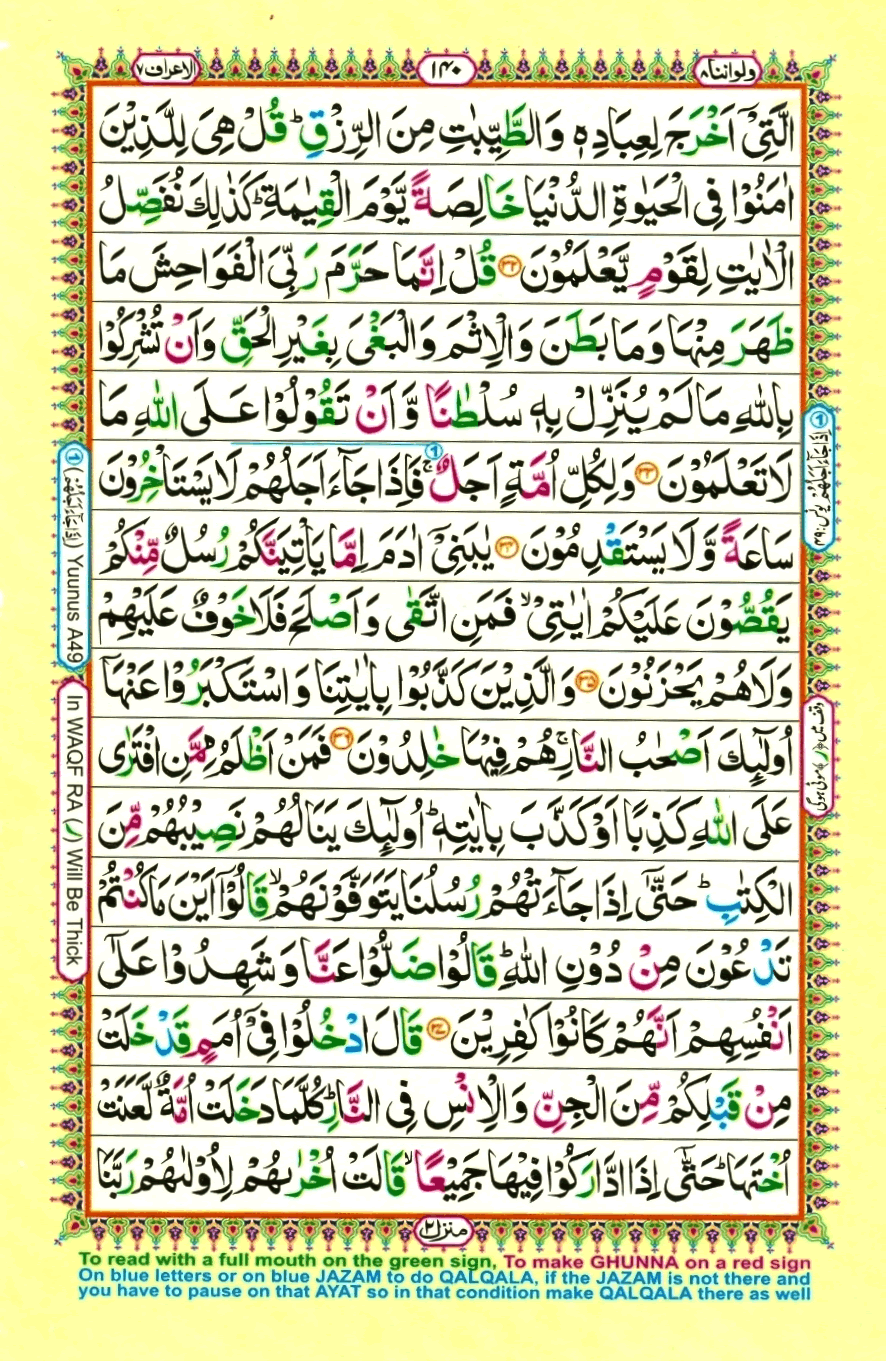 ولواننا ٨
١٤٠
الاعراف ٧
الَّتِیْۤ اَخْرَجَ لِعِبَادِهٖ وَالطَّیِّبٰتِ مِنَ الرِّزْقِ ؕ قُلْ هِیَ لِلَّذِیْنَ
اٰمَنُوْا فِی الْحَیٰوةِ الدُّنْیَا خَالِصَةً یَّوْمَ الْقِیٰمَةِ ؕ كَذٰلِكَ نُفَصِّلُ
الْاٰیٰتِ لِقَوْمٍ یَّعْلَمُوْنَ ﴿٣٢﴾ قُلْ اِنَّمَا حَرَّمَ رَبِّیَ الْفَوَاحِشَ مَا
ظَهَرَ مِنْهَا وَمَا بَطَنَ وَالْاِثْمَ وَالْبَغْیَ بِغَیْرِ الْحَقِّ وَاَنْ تُشْرِكُوْا
بِاللّٰهِ مَا لَمْ یُنَزِّلْ بِهٖ سُلْطٰنًا وَّاَنْ تَقُوْلُوْا عَلَی اللّٰهِ مَا
لَا تَعْلَمُوْنَ ﴿٣٣﴾ وَلِكُلِّ اُمَّةٍ اَجَلٌ ۚ فَاِذَا جَآءَ اَجَلُهُمْ لَا یَسْتَاْخِرُوْنَ
سَاعَةً وَّلَا یَسْتَقْدِمُوْنَ ﴿٣٤﴾ یٰبَنِیْۤ اٰدَمَ اِمَّا یَاْتِیَنَّكُمْ رُسُلٌ مِّنْكُمْ
یَقُصُّوْنَ عَلَیْكُمْ اٰیٰتِیْ ۙ فَمَنِ اتَّقٰی وَاَصْلَحَ فَلَا خَوْفٌ عَلَیْهِمْ
وَلَا هُمْ یَحْزَنُوْنَ ﴿٣٥﴾ وَالَّذِیْنَ كَذَّبُوْا بِاٰیٰتِنَا وَاسْتَكْبَرُوْا عَنْهَاۤ
اُولٰٓئِكَ اَصْحٰبُ النَّارِ ۚ هُمْ فِیْهَا خٰلِدُوْنَ ﴿٣٦﴾ فَمَنْ اَظْلَمُ مِمَّنِ افْتَرٰی
عَلَی اللّٰهِ كَذِبًا اَوْ كَذَّبَ بِاٰیٰتِهٖ ؕ اُولٰٓئِكَ یَنَالُهُمْ نَصِیْبُهُمْ مِّنَ
الْكِتٰبِ ؕ حَتّٰۤی اِذَا جَآءَتْهُمْ رُسُلُنَا یَتَوَفَّوْنَهُمْ ۙ قَالُوْۤا اَیْنَ مَا كُنْتُمْ
تَدْعُوْنَ مِنْ دُوْنِ اللّٰهِ ؕ قَالُوْا ضَلُّوْا عَنَّا وَشَهِدُوْا عَلٰۤی
اَنْفُسِهِمْ اَنَّهُمْ كَانُوْا كٰفِرِیْنَ ﴿٣٧﴾ قَالَ ادْخُلُوْا فِیْۤ اُمَمٍ قَدْ خَلَتْ
مِنْ قَبْلِكُمْ مِّنَ الْجِنِّ وَالْاِنْسِ فِی النَّارِ ؕ كُلَّمَا دَخَلَتْ اُمَّةٌ لَّعَنَتْ
اُخْتَهَا ؕ حَتّٰۤی اِذَا ادَّارَكُوْا فِیْهَا جَمِیْعًا ۙ قَالَتْ اُخْرٰىهُمْ لِاُوْلٰىهُمْ رَبَّنَا
١ اِذَا جَآءَ اَجَلُهُمْ یونس : ٤٩
وقف میں (ر) موٹی ہوگی
١ (اِذَا جَآءَ اَجَلُهُمْ) Yuunus A49
In WAQF RA (ر) Will Be Thick
منزل ٢
To read with a full mouth on the green sign, To make GHUNNA on a red sign
On blue letters or on blue JAZAM to do QALQALA, if the JAZAM is not there and
you have to pause on that AYAT so in that condition make QALQALA there as well